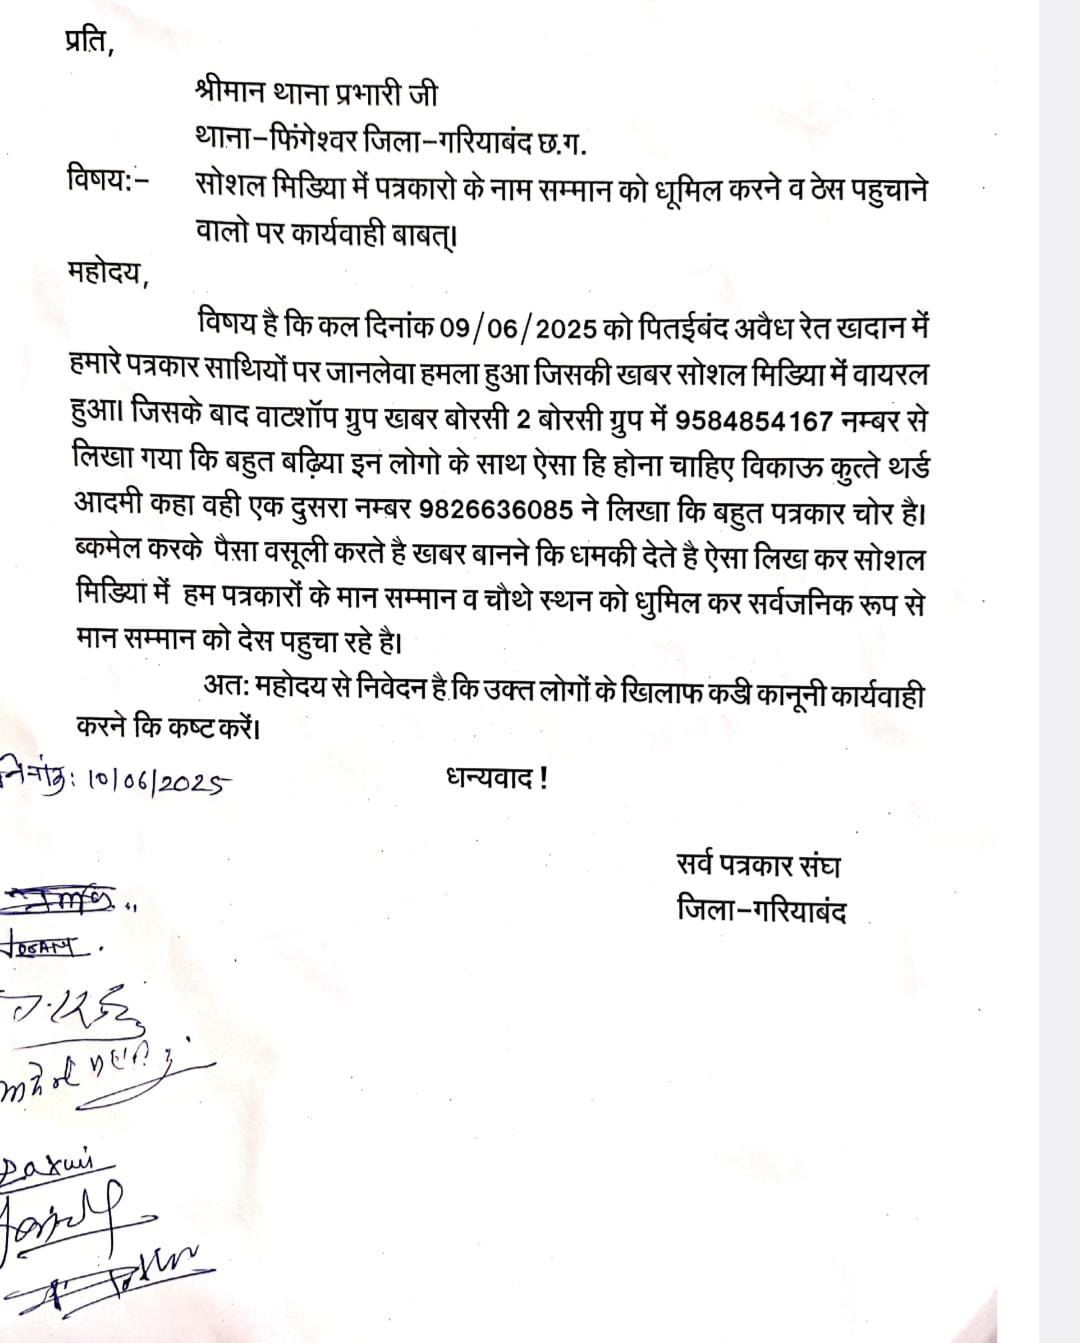 प्रति,
श्रीमान थाना प्रभारी जी
थाना-फिंगेश्वर जिला-गरियाबंद छ.ग.
विषय:- सोशल मिडिया में पत्रकारो के नाम सम्मान को धूमिल करने व ठेस पहुचाने
वालो पर कार्यवाही बाबत्।
महोदय,
विषय है कि कल दिनांक 09/06/2025 को पितईबंद अवैध रेत खदान में
हमारे पत्रकार साथियों पर जानलेवा हमला हुआ जिसकी खबर सोशल मिडिया में वायरल
हुआ। जिसके बाद वाटशॉप ग्रुप खबर बोरसी 2 बोरसी ग्रुप में 9584854167 नम्बर से
लिखा गया कि बहुत बढ़िया इन लोगो के साथ ऐसा हि होना चाहिए विकाऊ कुत्ते थर्ड
आदमी कहा वही एक दुसरा नम्बर 9826636085 ने लिखा कि बहुत पत्रकार चोर है।
ब्कमेल करके पैसा वसूली करते है खबर बानने कि धमकी देते है ऐसा लिख कर सोशल
मिडियां में हम पत्रकारों के मान सम्मान व चौथे स्थन को धुमिल कर सर्वजनिक रूप से
मान सम्मान को देस पहुचा रहे है।
अत: महोदय से निवेदन है कि उक्त लोगों के खिलाफ कडी कानूनी कार्यवाही
करने कि कष्ट करें।
10/06/2025 धन्यवाद !
सर्व पत्रकार संघ
जिला-गरियाबंद